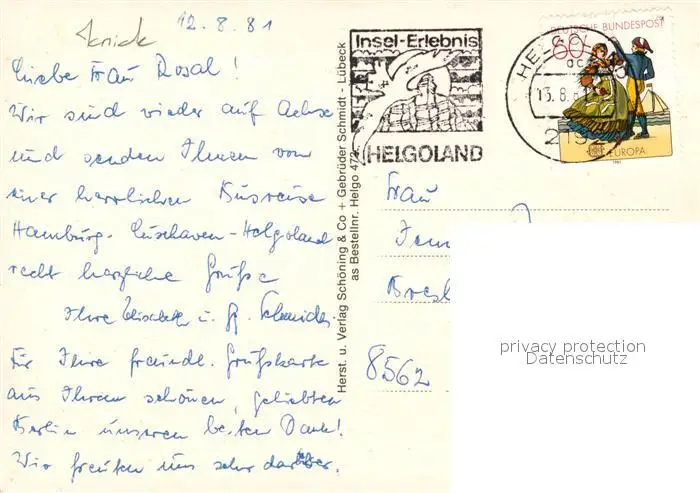 12.8.81
Liebe Frau Rosal!
Wir sind wieder auf Achse
und senden Ihnen von
einer herrlichen Busreise
Hamburg-Cuxhaven-Helgoland
recht herzliche Grüße
Ihre Elisabeth u.
Für Ihre freundl. Grußkarte
aus Ihrem schönen, geliebten
Berlin unseren besten Dank!
Wir freuten uns sehr darüber.
Herst. u. Verlag Schöning & Co + Gebrüder Schmidt - Lübeck
as Bestellnr. Helgo 472
Insel-Erlebnis
HELGOLAND
HELG
13.8.
219
DEUTSCHE BUNDESPOST
60
EUROPA
1981
Frau
8562
privacy protection
Datenschutz